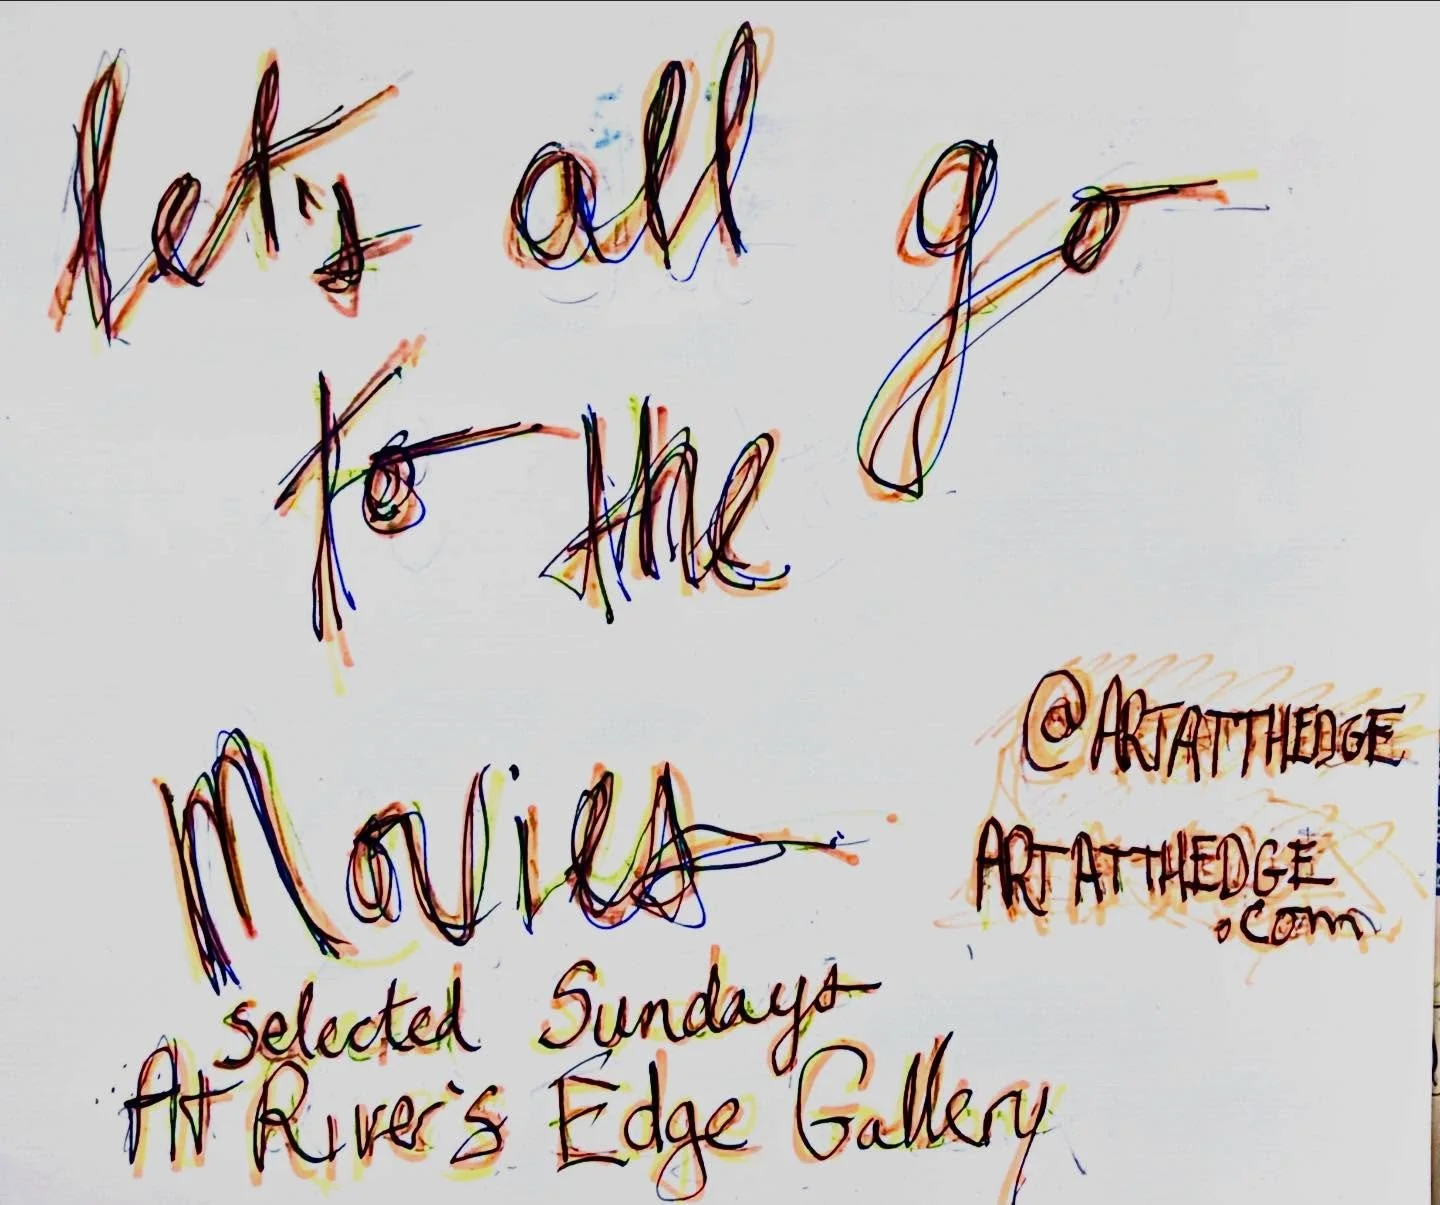 let's all go
to the
Movies
@ARTATTHEDGE
ARTATTHEDGE
.com
selected Sundays
At River's Edge Gallery